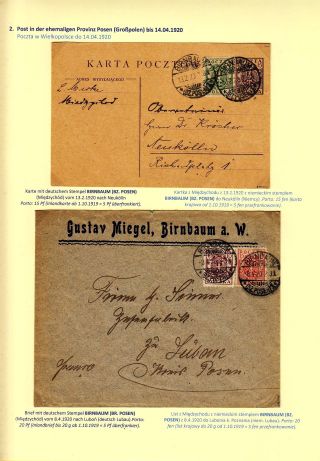 2. Post in der ehemaligen Provinz Posen (Großpolen) bis 14.04.1920
Poczta w Wielkopolsce do 14.04.1920
KARTA POCZTOWA
Herrn Dr. Kröcher
Neukölln
Richardsplatz 1
Karte mit deutschem Stempel BIRNBAUM (BZ. POSEN)
(Międzychód) vom 13.2.1920 nach Neukölln
Porto: 15 Pf (Inlandkarte ab 1.10.1919 = 5 Pf überfrankiert).
Kartka z Międzychodu z 13.2.1920 z niemieckim stemplem
BIRNBAUM (BZ. POSEN) do Neukölln (Niemcy). Porto: 15 fen (kartka
krajowa od 1.10.1919 = 5 fen przefrankowane).
Gustav Miegel, Birnbaum a. W.
Firma
zu
Luban
Kreis Posen
Brief mit deutschem Stempel BIRNBAUM (BR. POSEN)
(Międzychód) vom 8.4.1920 nach Luboń (deutsch Luban) Porto:
20 Pf (Inlandbrief bis 20 g ab 1.10.1919 = 5 Pf überfrankiert).
List z Międzychodu z niemieckim stemplem BIRNBAUM (BZ.
POSEN) z 8.4.1920 do Lubonia k. Poznania (niem. Luban). Porto: 20
fen (list krajowy do 20 g od 1.10.1919 = 5 fen przefrankowane).